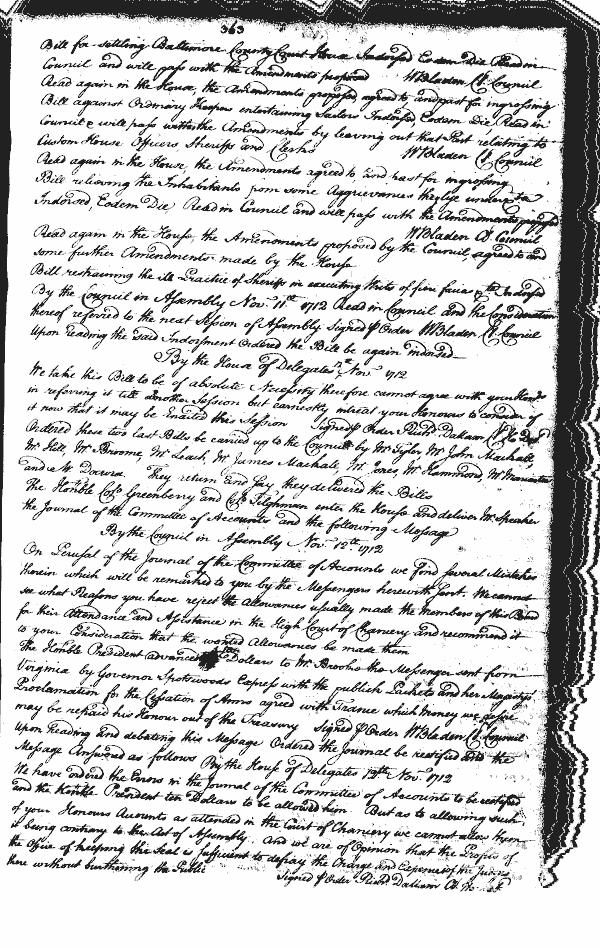 363
Bill for settling Baltimore County Court House Indorsed Eodem Die Read in
Council and will pass with the Amendments proposed WBladen Cl Council
Read again in the House, the Amendments proposed, agreed to and past for ingrossing
Bill against Ordinary Keepers entertaining Sailors Indorsed, Eodem Die, Read in
Council & will pass with the Amendments by leaving out that Part relating to
Custom House Officers, Sheriffs and Clerks WBladen Cl Council
Read again in the House, the Amendments agreed to and past for ingrossing
Bill relieving the Inhabitants from some Aggrievances they lye under &ca
Indorsed, Eodem Die Read in Council and will pass with the Amendments proposed
WBladen Cl Council
Read again in the House, the Amendments proposed by the Council agreed to and
some further Amendments made by the House
Bill restraining the ill Practice of Sheriffs in executing Writs of fieri facias &ca Indorsed
By the Council in Assembly Novr. 11th 1712 Read in Council and the Consideration
thereof referred to the next Session of Assembly Signed P Order WBladen Cl Council
Upon reading the said Indorsment Ordered the Bill be again indorsed
By the House of Delegates Novr 1712
We take this Bill to be of absolute Necessity therefore cannot agree with your Honrs
in referring it till another Session but earnestly intreat your Honours to consider of
it now that it may be Enacted this Session Signed P Order Richd. Dallam Cl Ho Del
Ordered these two last Bills be carried up to the Council by Mr Tyler, Mr John Mackall,
Mr Hill, Mr Broome, Mr Leach, Mr James Mackall, Mr Jones, Mr Hammond, Mr
and Mr Docwra. They return and say they delivered the Bills
The Honble Colo. Greenberry and Colo Tilghman enter the House and deliver Mr Speaker
the Journal of the Committee of Accounts and the following Message
By the Council in Assembly Novr. 12th 1712
On Perusal of the Journal of the Committee of Accounts we find several Mistakes
therein which will be remarked to you by the Messengers herewith sent. We cannot
see what Reasons you have reject the Allowances usually made the Members of this Board
for their Attendance and Assistance in the High Court of Chancery and recommend it
to your Consideration that the wonted Allowances be made them
The Honble President advanced Dollars to Mr Brooke the Messenger sent from
Virginia by Governor Spotswoods Express with the publick Packets and her Majestys
Proclamation for the Cessation of Arms agreed with France which Money we desire
may be repaid his Honour out of the Treasury Signed P Order WBladen Cl Council
Upon Reading and debating this Message Ordered the Journal be rectified and the
Message Answered as follows By the House of Delegates 12th Novr 1712
We have ordered the Errors in the Journal of the Committee of Accounts to be rectified
and the Honble President ten Dollars to be allowed him But as to allowing such
of your Honours Accounts as attended in the Court of Chancery we cannot allow them
it being contrary to the Act of Assembly. And we are of Opinion that the Profits of
the Office of keeping the Seal is sufficient to defray the Charge and Expence of the Judges
there without burthening the Public
Signed P Order Richd Dallam Cl Ho